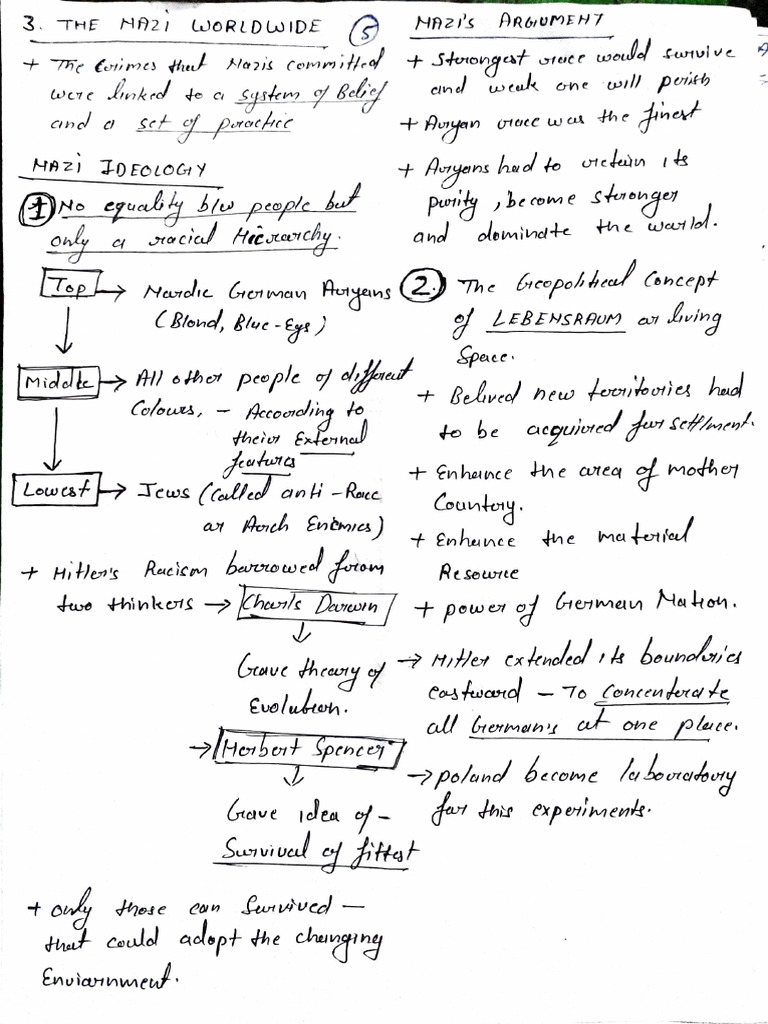 3. THE NAZI WORLDWIDE
5
+ The Crimes that Nazis committed
were linked to a system of Belief
and a set of practice
NAZI IDEOLOGY
1 No equality b/w people but
only a racial Hierarchy.
Top → Nardic German Aryans
(Blond, Blue-Eys)
Middle → All other people of different
Colours, - According to
their External
features
Lowest → Jews (Called anti-Race
or Arch Enemies)
+ Hitler's Racism barrowed from
two thinkers → Charls Darwin
Gave theory of
Evolution.
→ Herbert Spencer
Gave idea of -
Survival of fittest
+ only those can Survived -
that could adopt the changing
Enviarnment.
NAZI'S ARGUMENT
+ Strongest race would survive
and weak one will perish
+ Aryan race was the finest
+ Aryans had to retain its
purity, become stronger
and dominate the world.
2. The Geopolitical Concept
of LEBENSRAUM or living
Space.
+ Belived new territories had
to be acquired for settlment.
+ Enhance the area of mother
Country.
+ Enhance the material
Resource
+ power of German Nation.
→ Hitler extended its boundries
eastward - To Concenterate
all German's at one place.
→ poland become laboratory
for this experiments.